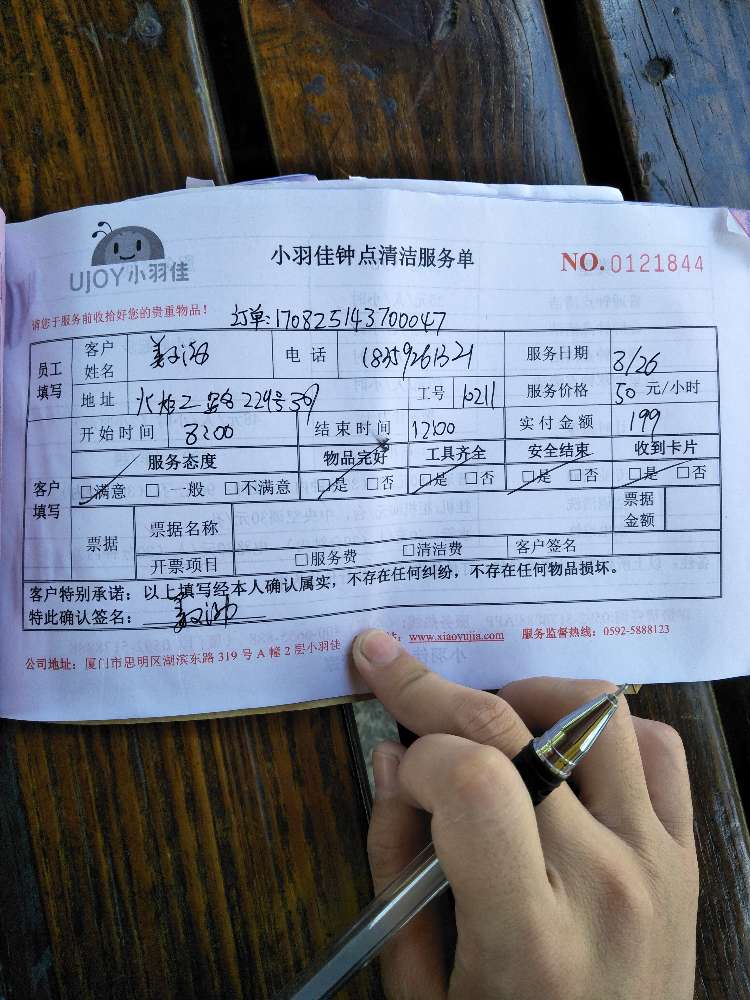 UJOY小羽佳
小羽佳钟点清洁服务单
NO. 0121844
请您于服务前收拾好您的贵重物品!
订单:170825143700047
员工填写 客户姓名 电话 18359261321 服务日期 8/26
地址 224号 工号 10211 服务价格 50 元/小时
开始时间 8:00 结束时间 12:00 实付金额 199
客户填写 服务态度 物品完好 工具齐全 安全结束 收到卡片
□满意 □一般 □不满意 □是 □否 □是 □否 □是 □否 □是 □否
票据 票据名称 票据金额
开票项目 □服务费 □清洁费 客户签名
客户特别承诺:以上填写经本人确认属实,不存在任何纠纷,不存在任何物品损坏。
特此确认签名:
公司地址:厦门市思明区湖滨东路 319 号 A 幢 2 层小羽佳 www.xiaoyujia.com 服务监督热线:0592-5888123